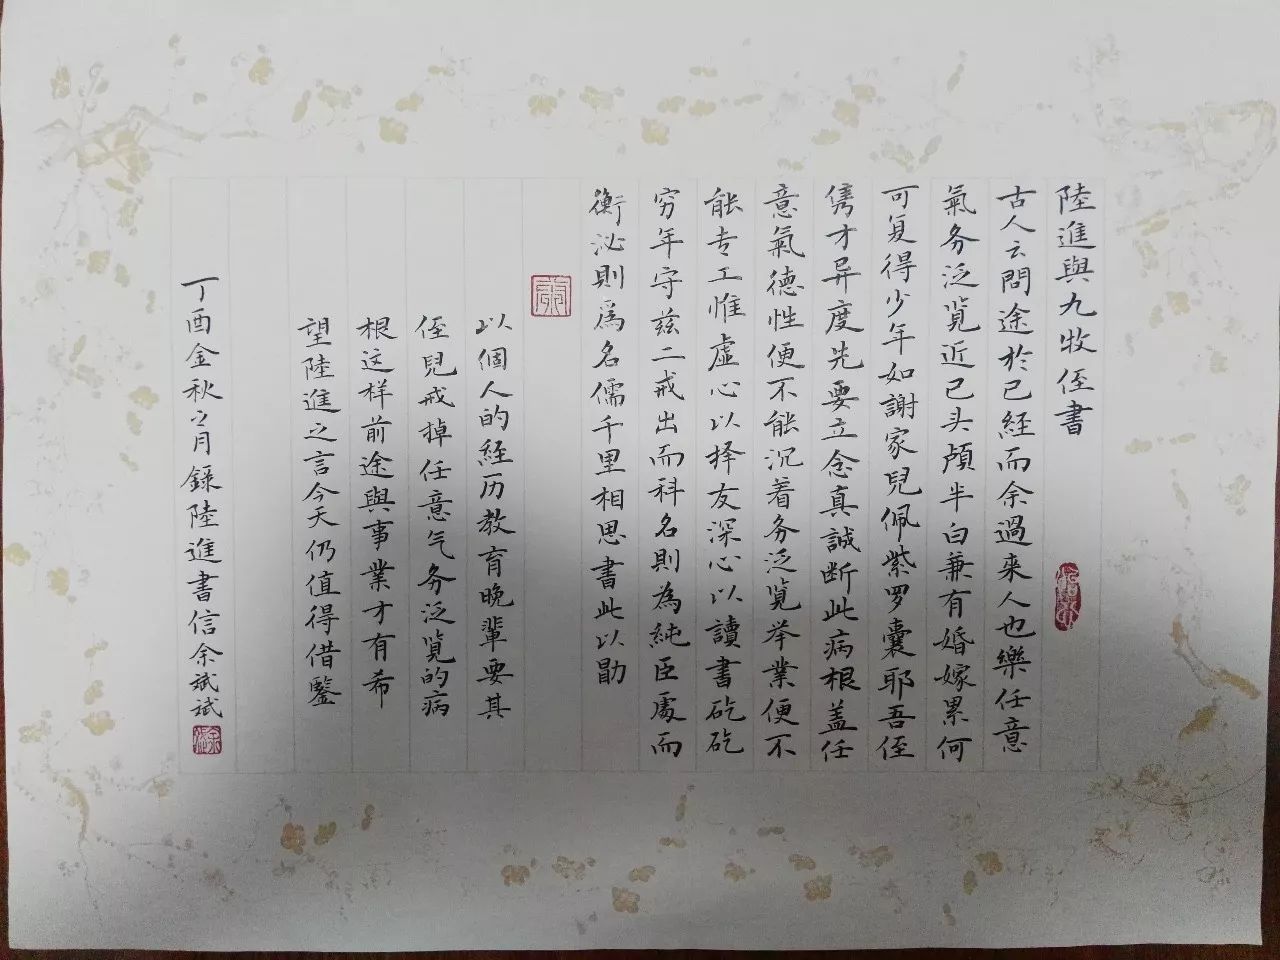 陸進與九牧侄書
古人云問途於已経而余過来人也樂任意
氣务泛覧近已头颅半白兼有婚嫁累何
可复得少年如謝家兒佩紫罗囊耶吾侄
隽才异度先要立念真誠断此病根盖任
意氣德性便不能沉着务泛覧举業便不
能专工惟虚心以择友深心以讀書矻矻
穷年守兹二戒出而科名則為純臣處而
衡泌則爲名儒千里相思書此以勖
以個人的経历教育晚輩要其
侄兒戒掉任意气务泛覧的病
根这样前途與事業才有希
望陸進之言今天仍值得借鑒
丁酉金秋之月錄陸進書信余斌斌